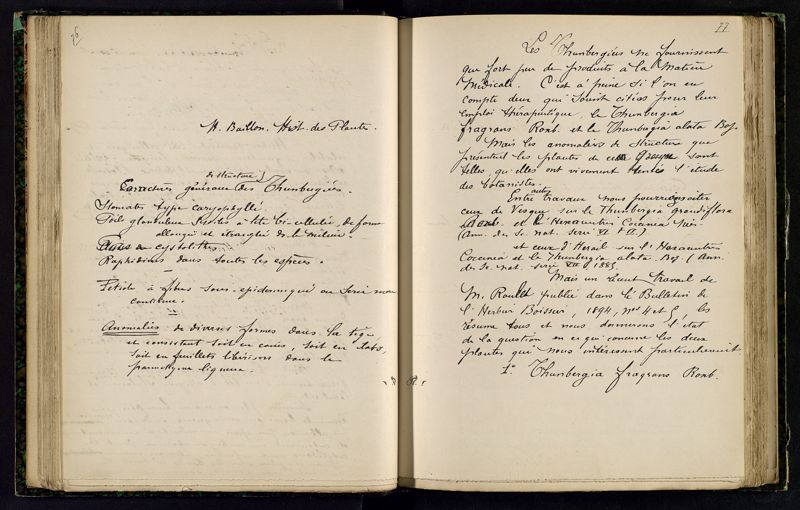 76
H. Baillon. Hist. des Plantes.
de structure
Caractères généraux des Thunbergiées.
Stomates type caryophyllé
Poils glanduleux sécrétés à tête bi-cellulée, de forme
allongée et étranglée dans le milieu.
cystolithes
Raphidines dans toutes les espèces.
Péricle à fibres sous-épidermiques ou
continue.
Anomalies de diverses formes dans la tige
et consistent soit en coins, soit en îlots,
soit en feuillets libériens dans le
parenchyme ligneux.
77
Les Thunbergiées ne fournissent
que fort peu de produits à la matière
médicale. C'est à peine si l'on en
compte deux qui soient citées pour leur
emploi thérapeutique, le Thunbergia
fragrans Roxb. et le Thunbergia alata Boj.
Mais les anomalies de structure que
présentent les plantes de ce groupe sont
telles, qu'elles ont vivement tenté l'étude
des botanistes.
Entre autres travaux nous pourrions citer
ceux de Vesque sur le Thunbergia grandiflora
et l'Hexacentris Coccinea Nees.
(Ann. des Sc. nat. serie VI t II.)
et ceux d'Hérail sur l'Hexacentris
Coccinea et le Thunbergia alata Boj. (Ann.
des Sc. nat. serie VII 1885.
Mais un récent travail de
M. Roulet publié dans le Bulletin de
l'Herbier Boissier, 1894, nos 4 et 5, les
résume tous et nous donnerons l'état
de la question en ce qui concerne les deux
plantes qui nous intéressent particulièrement.
1° Thunbergia fragrans Roxb.